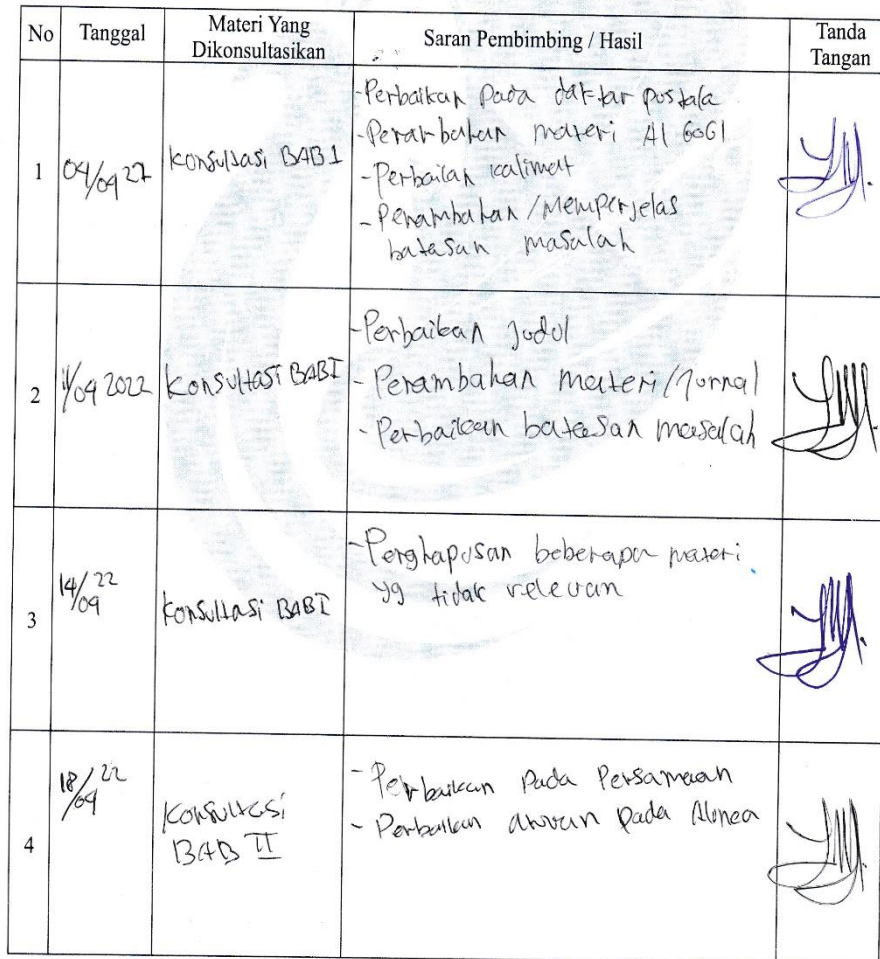 No
Tanggal
Materi Yang
Dikonsultasikan
Saran Pembimbing / Hasil
Tanda
Tangan
1
04/09 22
Konsultasi BAB I
-Perbaikan Pada daftar pustaka
-Penambahan materi Al 6061
-Perbaikan kalimat
-Penambahan/Memperjelas
batasan masalah
2
11/09 2022
Konsultasi BAB I
-Perbaikan Judul
-Penambahan materi/Jurnal
-Perbaikan batasan masalah
3
14/09 22
Konsultasi BAB I
-Penghapusan beberapa materi
yg tidak relevan
4
18/09 22
Konsultasi
BAB II
- Perbaikan Pada Persamaan
- Perbaikan pada Alinea